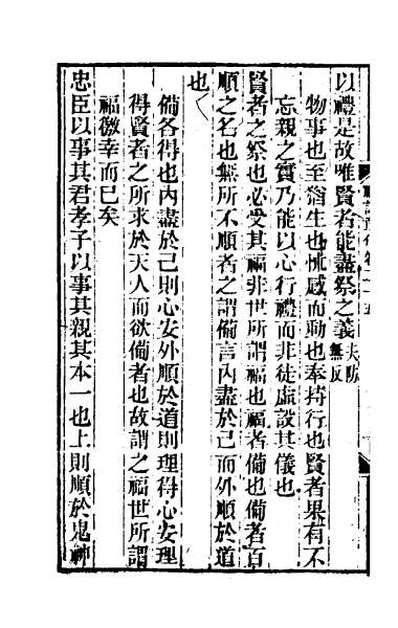 以禮是故唯賢者能盡祭之義夫防無反
物事也至猶生也怵感而動也奉持行也賢者果有不
忘親之實乃能以心行禮而非徒虛設其儀也
賢者之祭也必受其福非世所謂福也福者備也備者百
順之名也無所不順者之謂備言內盡於己而外順於道
也
備各得也內盡於己則心安外順於道則理得心安理
得賢者之所求於天人而欲備者也故謂之福世所謂
福徼幸而已矣
忠臣以事其君孝子以事其親其本一也上則順於鬼神